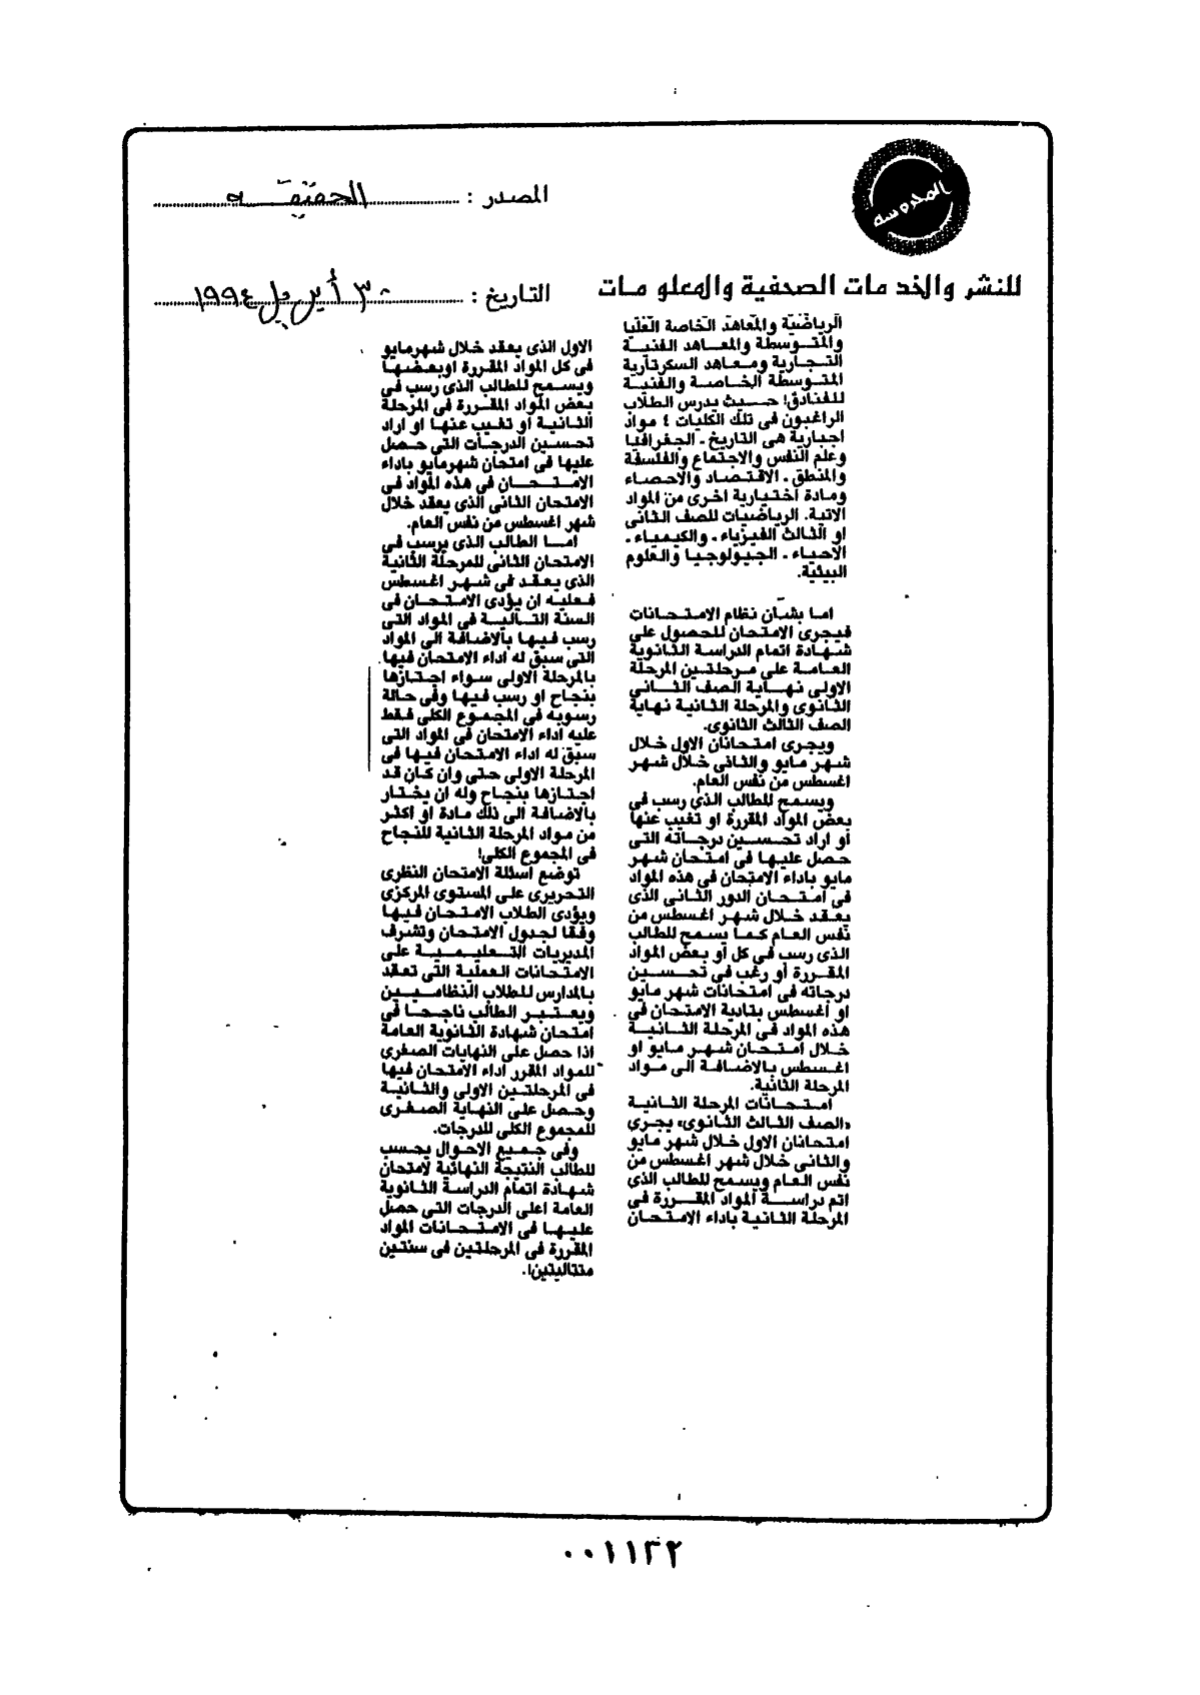 المحروسه
المصدر : الحقيقه
للنشر والخدمات الصحفية والمعلومات
التاريخ : ٣٠ أبريل ١٩٩٤
الرياضية والمعاهد الخاصة العليا
والمتوسطة والمعاهد الفنية
التجارية ومعاهد السكرتارية
المتوسطة الخاصة والفنية
للفنادق! حيث يدرس الطلاب
الراغبون فى تلك الكليات ٤ مواد
اجبارية هى التاريخ ـ الجغرافيا
وعلم النفس والاجتماع والفلسفة
والمنطق ـ الاقتصاد والاحصاء
ومادة اختيارية اخرى من المواد
الاتية. الرياضيات للصف الثانى
او الثالث الفيزياء ـ والكيمياء ـ
الاحياء ـ الجيولوجيا والعلوم
البيئية.
اما بشأن نظام الامتحانات
فيجرى الامتحان للحصول على
شهادة اتمام الدراسة الثانوية
العامة على مرحلتين المرحلة
الاولى نهاية الصف الثانى
الثانوى والمرحلة الثانية نهاية
الصف الثالث الثانوى.
ويجرى امتحانان الاول خلال
شهر مايو والثانى خلال شهر
اغسطس من نفس العام.
ويسمح للطالب الذى رسب فى
بعض المواد المقررة او تغيب عنها
أو اراد تحسين درجاته التى
حصل عليها فى امتحان شهر
مايو باداء الامتحان فى هذه المواد
فى امتحان الدور الثانى الذى
يعقد خلال شهر اغسطس من
نفس العام كما يسمح للطالب
الذى رسب فى كل أو بعض المواد
المقررة أو رغب فى تحسين
درجاته فى امتحانات شهر مايو
او أغسطس بتادية الامتحان فى
هذه المواد فى المرحلة الثانية
خلال امتحان شهر مايو او
اغسطس بالاضافة الى مواد
المرحلة الثانية.
امتحانات المرحلة الثانية
«الصف الثالث الثانوى» يجرى
امتحانان الاول خلال شهر مايو
والثانى خلال شهر اغسطس من
نفس العام ويسمح للطالب الذى
اتم دراسة المواد المقررة فى
المرحلة الثانية باداء الامتحان
الاول الذى يعقد خلال شهر مايو
فى كل المواد المقررة اوبعضها
ويسمح للطالب الذى رسب فى
بعض المواد المقررة فى المرحلة
الثانية أو تغيب عنها او اراد
تحسين الدرجات التى حصل
عليها فى امتحان شهر مايو باداء
الامتحان فى هذه المواد فى
الامتحان الثانى الذى يعقد خلال
شهر اغسطس من نفس العام.
اما الطالب الذى يرسب فى
الامتحان الثانى للمرحلة الثانية
الذى يعقد فى شهر اغسطس
فعليه ان يؤدى الامتحان فى
السنة التالية فى المواد التى
رسب فيها بالاضافة الى المواد
التى سبق له اداء الامتحان فيها
بالمرحلة الاولى سواء اجتازها
بنجاح او رسب فيها وفى حالة
رسوبه فى المجموع الكلى فقط
عليه اداء الامتحان فى المواد التى
سبق له اداء الامتحان فيها فى
المرحلة الاولى حتى وان كان قد
اجتازها بنجاح وله ان يختار
بالاضافة الى ذلك مادة او اكثر
من مواد المرحلة الثانية للنجاح
فى المجموع الكلى!
توضع اسئلة الامتحان النظرى
التحريرى على المستوى المركزى
ويؤدى الطلاب الامتحان فيها
وفقا لجدول الامتحان وتشرف
المديريات التعليمية على
الامتحانات العملية التى تعقد
بالمدارس للطلاب النظاميين
ويعتبر الطالب ناجحا فى
امتحان شهادة الثانوية العامة
اذا حصل على النهايات الصغرى
للمواد المقرر اداء الامتحان فيها
فى المرحلتين الاولى والثانية
وحصل على النهاية الصغرى
للمجموع الكلى للدرجات.
وفى جميع الاحوال يحسب
للطالب النتيجة النهائية لامتحان
شهادة اتمام الدراسة الثانوية
العامة اعلى الدرجات التى حصل
عليها فى الامتحانات المواد
المقررة فى المرحلتين فى سنتين
متتاليتين!.
٠٠١١٣٢